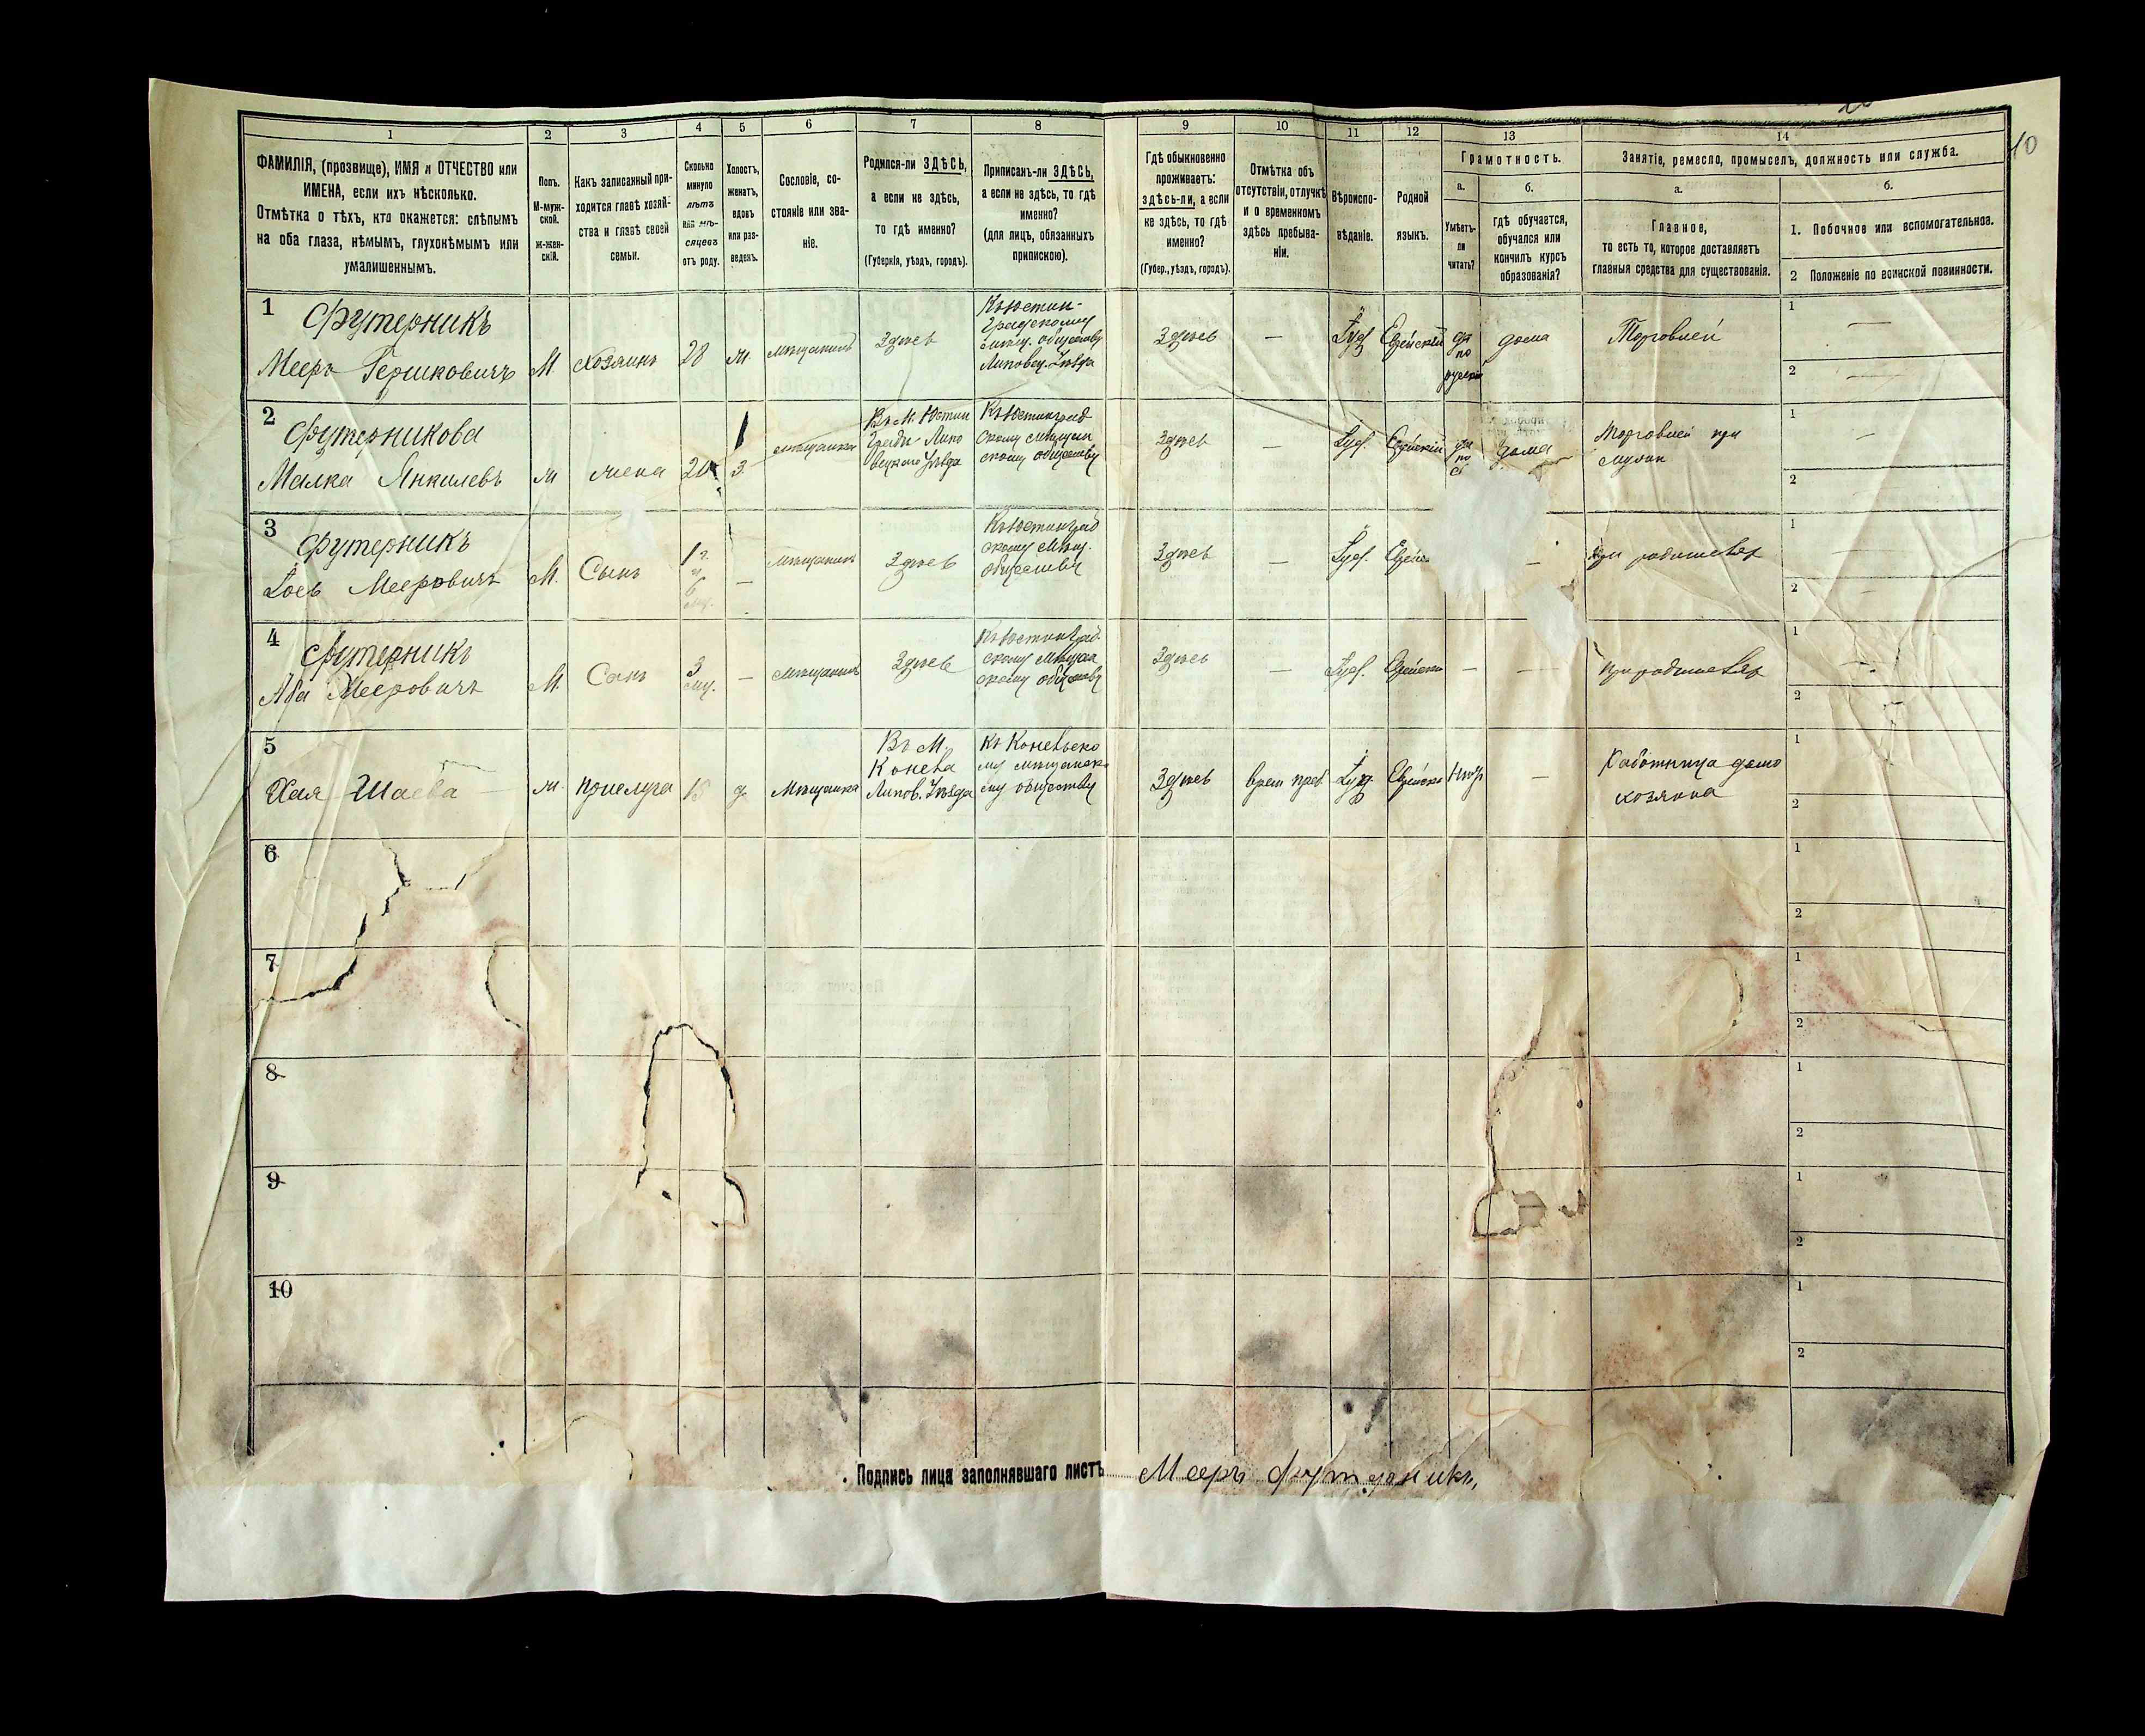 10
1
2
3
4
5
6
7
8
9
10
11
12
13
14
ФАМИЛІЯ, (прозвище), ИМЯ и ОТЧЕСТВО или
ИМЕНА, если ихъ нѣсколько.
Отмѣтка о тѣхъ, кто окажется: слѣпымъ
на оба глаза, нѣмымъ, глухонѣмымъ или
умалишеннымъ.
Полъ.
М-муж-
ской.
ж-жен-
скій.
Какъ записанный при-
ходится главѣ хозяй-
ства и главѣ своей
семьи.
Сколько
минуло
лѣтъ
или мѣ-
сяцевъ
отъ роду.
Холостъ,
женатъ,
вдовъ
или раз-
веденъ.
Сословіе, со-
стояніе или зва-
ніе.
Родился-ли ЗДѢСЬ,
а если не здѣсь,
то гдѣ именно?
(Губернія, уѣздъ, городъ).
Приписанъ-ли ЗДѢСЬ,
а если не здѣсь, то гдѣ
именно?
(для лицъ, обязанныхъ
припискою).
Гдѣ обыкновенно
проживаетъ:
здѣсь-ли, а если
не здѣсь, то гдѣ
именно?
(Губер., уѣздъ, городъ).
Отмѣтка объ
отсутствіи, отлучкѣ
и о временномъ
здѣсь пребыва-
ніи.
Вѣроиспо-
вѣданіе.
Родной
языкъ.
Грамотность.
а.
Умѣетъ-
ли
читать?
б.
гдѣ обучается,
обучался или
кончилъ курсъ
образованія?
Занятіе, ремесло, промыселъ, должность или служба.
а.
Главное,
то есть то, которое доставляетъ
главныя средства для существованія.
б.
1. Побочное или вспомогательное.
2 Положеніе по воинской повинности.
1
Футерникъ
Мееръ Гершковичъ
М
Хозяинъ
28
ж.
мѣщанинъ
Здѣсь
Къ Юстин-
градскому
мѣщ. обществу
Липовец. Уѣзда
Здѣсь
—
Іуд
Еврейскій
да
по
русски
дома
Торговлей
1 —
2 —
2
Футерникова
Малка Янкилевъ
ж
жена
20
з.
мѣщанка
Въ М. Юстин
градѣ Липо
вецкаго Уѣзда
Къ Юстинград
скому мѣщан
скому обществу
Здѣсь
—
Іуд.
Еврейскій
да
по
дома
торговлей при
мужѣ
1 —
2
3
Футерникъ
Іось Мееровичъ
М.
Сынъ
1 г.
и
6
мц.
—
мѣщанинъ
Здѣсь
Къ Юстинград
скому мѣщ.
обществу
Здѣсь
—
Іуд.
Еврейс
—
При родителях
1 —
2 —
4
Футерникъ
Аба Мееровичъ
М.
Сынъ
3
мц.
—
мѣщанинъ
Здѣсь
Къ Юстинград-
скому мѣщан
скому обществу
Здѣсь
—
Іуд.
Еврейски
—
—
При родителях
1 —
2
5
Хая Шаева —
ж.
прислуга
д.
Мѣщанка
Въ М.
Конела
Липов. Уѣзда
къ Конельско
му мѣщанск
ому обществу
Здѣсь
врем преб
Іуд.
Еврейски
нѣт
—
Работница дома
хозяина
1
2
6
1
2
7
1
2
8
1
2
9
1
2
10
1
2
Подпись лица заполнявшаго листъ Мееръ Футерникъ,